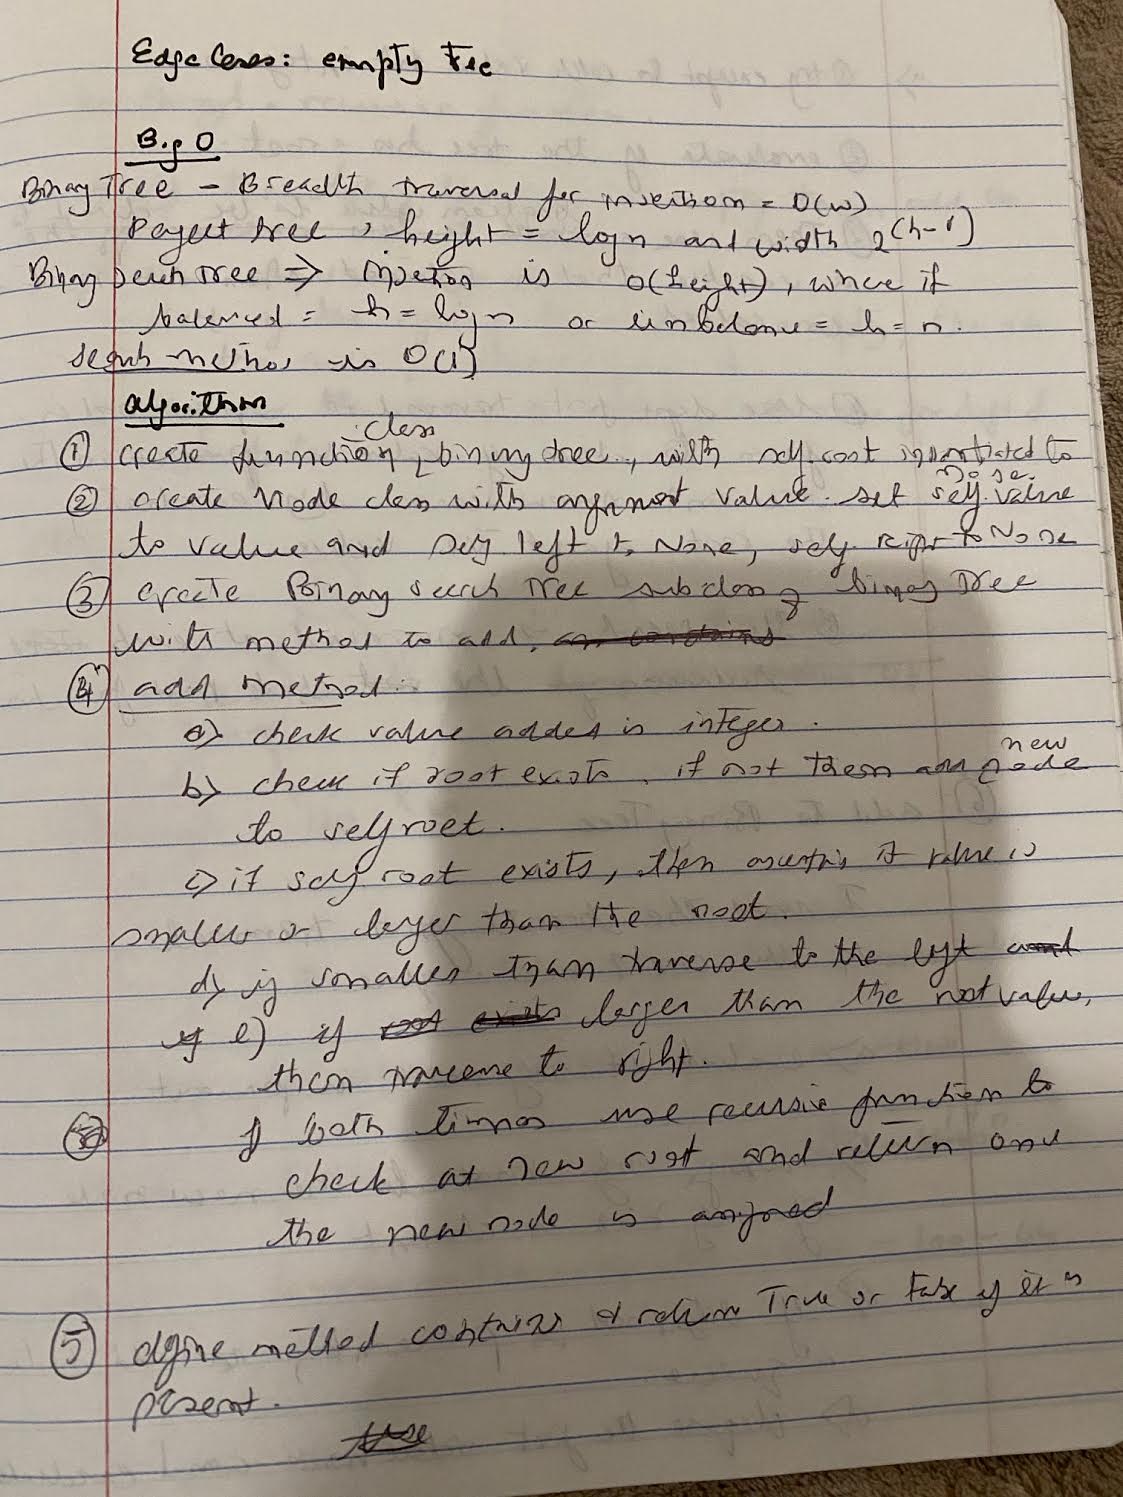 Edge Cases: empty Tree
Big O
Binary Tree - Breadth traversal for insertion = O(w)
Perfect tree, height = log n and width 2^(h-1)
Binary Search Tree => Insertion is O(height), where if
balanced = h = log n or unbalance = h = n.
search method is O(1)
algorithm
① create function, class binary tree, with self.root instantiated to none.
② create Node class with argument value. set self.value
to value and self left to None, self right to None
③ create Binary search Tree subclass of binary Tree
with method to add, as contains
④ add method:
a) check value added is integer.
b) check if root exists, if not then add new node
to self root.
c) if self root exists, then ascertain if value is
smaller or larger than the root.
d) if smaller than traverse to the left and
if e) if root exists larger than the root value,
then traverse to right.
f) both times use recursive function to
check at new root and return once
the new node is assigned
⑤ define method contains & return True or False if it is
present.